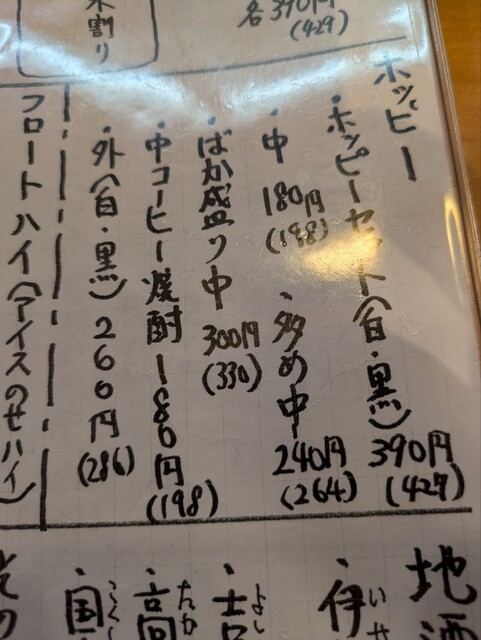 各390円
(429)
水割り
ホッピー
・ホッピーセット(白・黒)390円
(429)
・中 180円
(198)
・多め中 240円
(264)
・ばか盛り中 300円
(330)
・中コーヒー焼酎 180円
(198)
・外(白・黒)260円
(286)
フロートハイ(アイスのせハイ)
地酒
・伊
いせ
よし
たか
・国
こくし
その